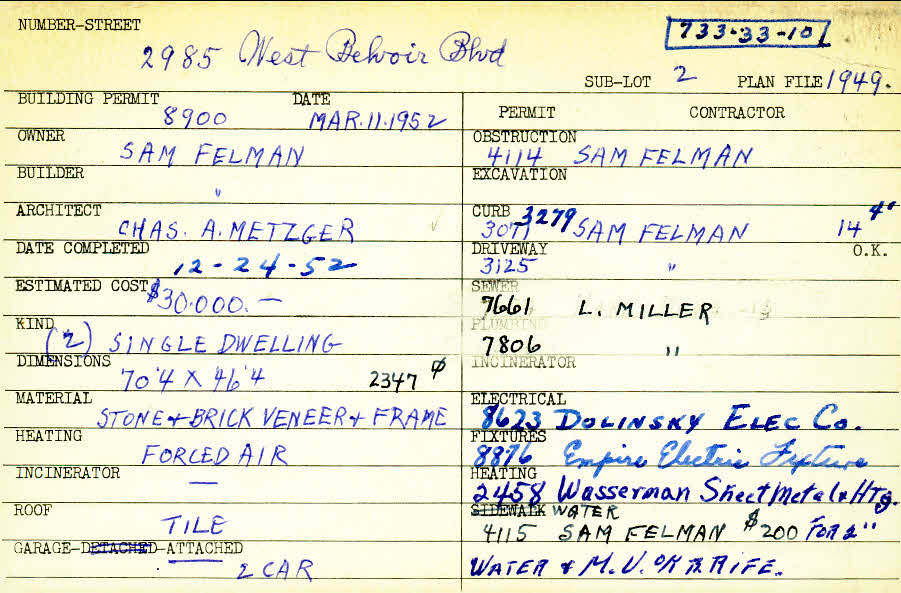 NUMBER-STREET
2985 West Belvoir Blvd
733-33-10
SUB-LOT 2 PLAN FILE 1949.
BUILDING PERMIT DATE
8900 MAR. 11. 1952
OWNER
SAM FELMAN
BUILDER
"
ARCHITECT
CHAS. A. METZGER
DATE COMPLETED
12-24-52
ESTIMATED COST $30.000.—
KIND
(2) SINGLE DWELLING
DIMENSIONS
70'4 X 46'4 2347
MATERIAL
STONE + BRICK VENEER + FRAME
HEATING
FORCED AIR
INCINERATOR
—
ROOF
TILE
GARAGE-DETACHED-ATTACHED
2 CAR
PERMIT CONTRACTOR
OBSTRUCTION
4114 SAM FELMAN
EXCAVATION
CURB 3279
3071 SAM FELMAN 14 4"
DRIVEWAY O.K.
3125 "
SEWER
7661 L. MILLER
PLUMBING
7806 "
INCINERATOR
ELECTRICAL
8623 DOLINSKY ELEC CO.
FIXTURES
8876 Empire Electric Fixture
HEATING
2458 Wasserman Sheet Metal & HTg.
SIDEWALK WATER
4115 SAM FELMAN $200 FOR 2"
WATER & M.V. OK